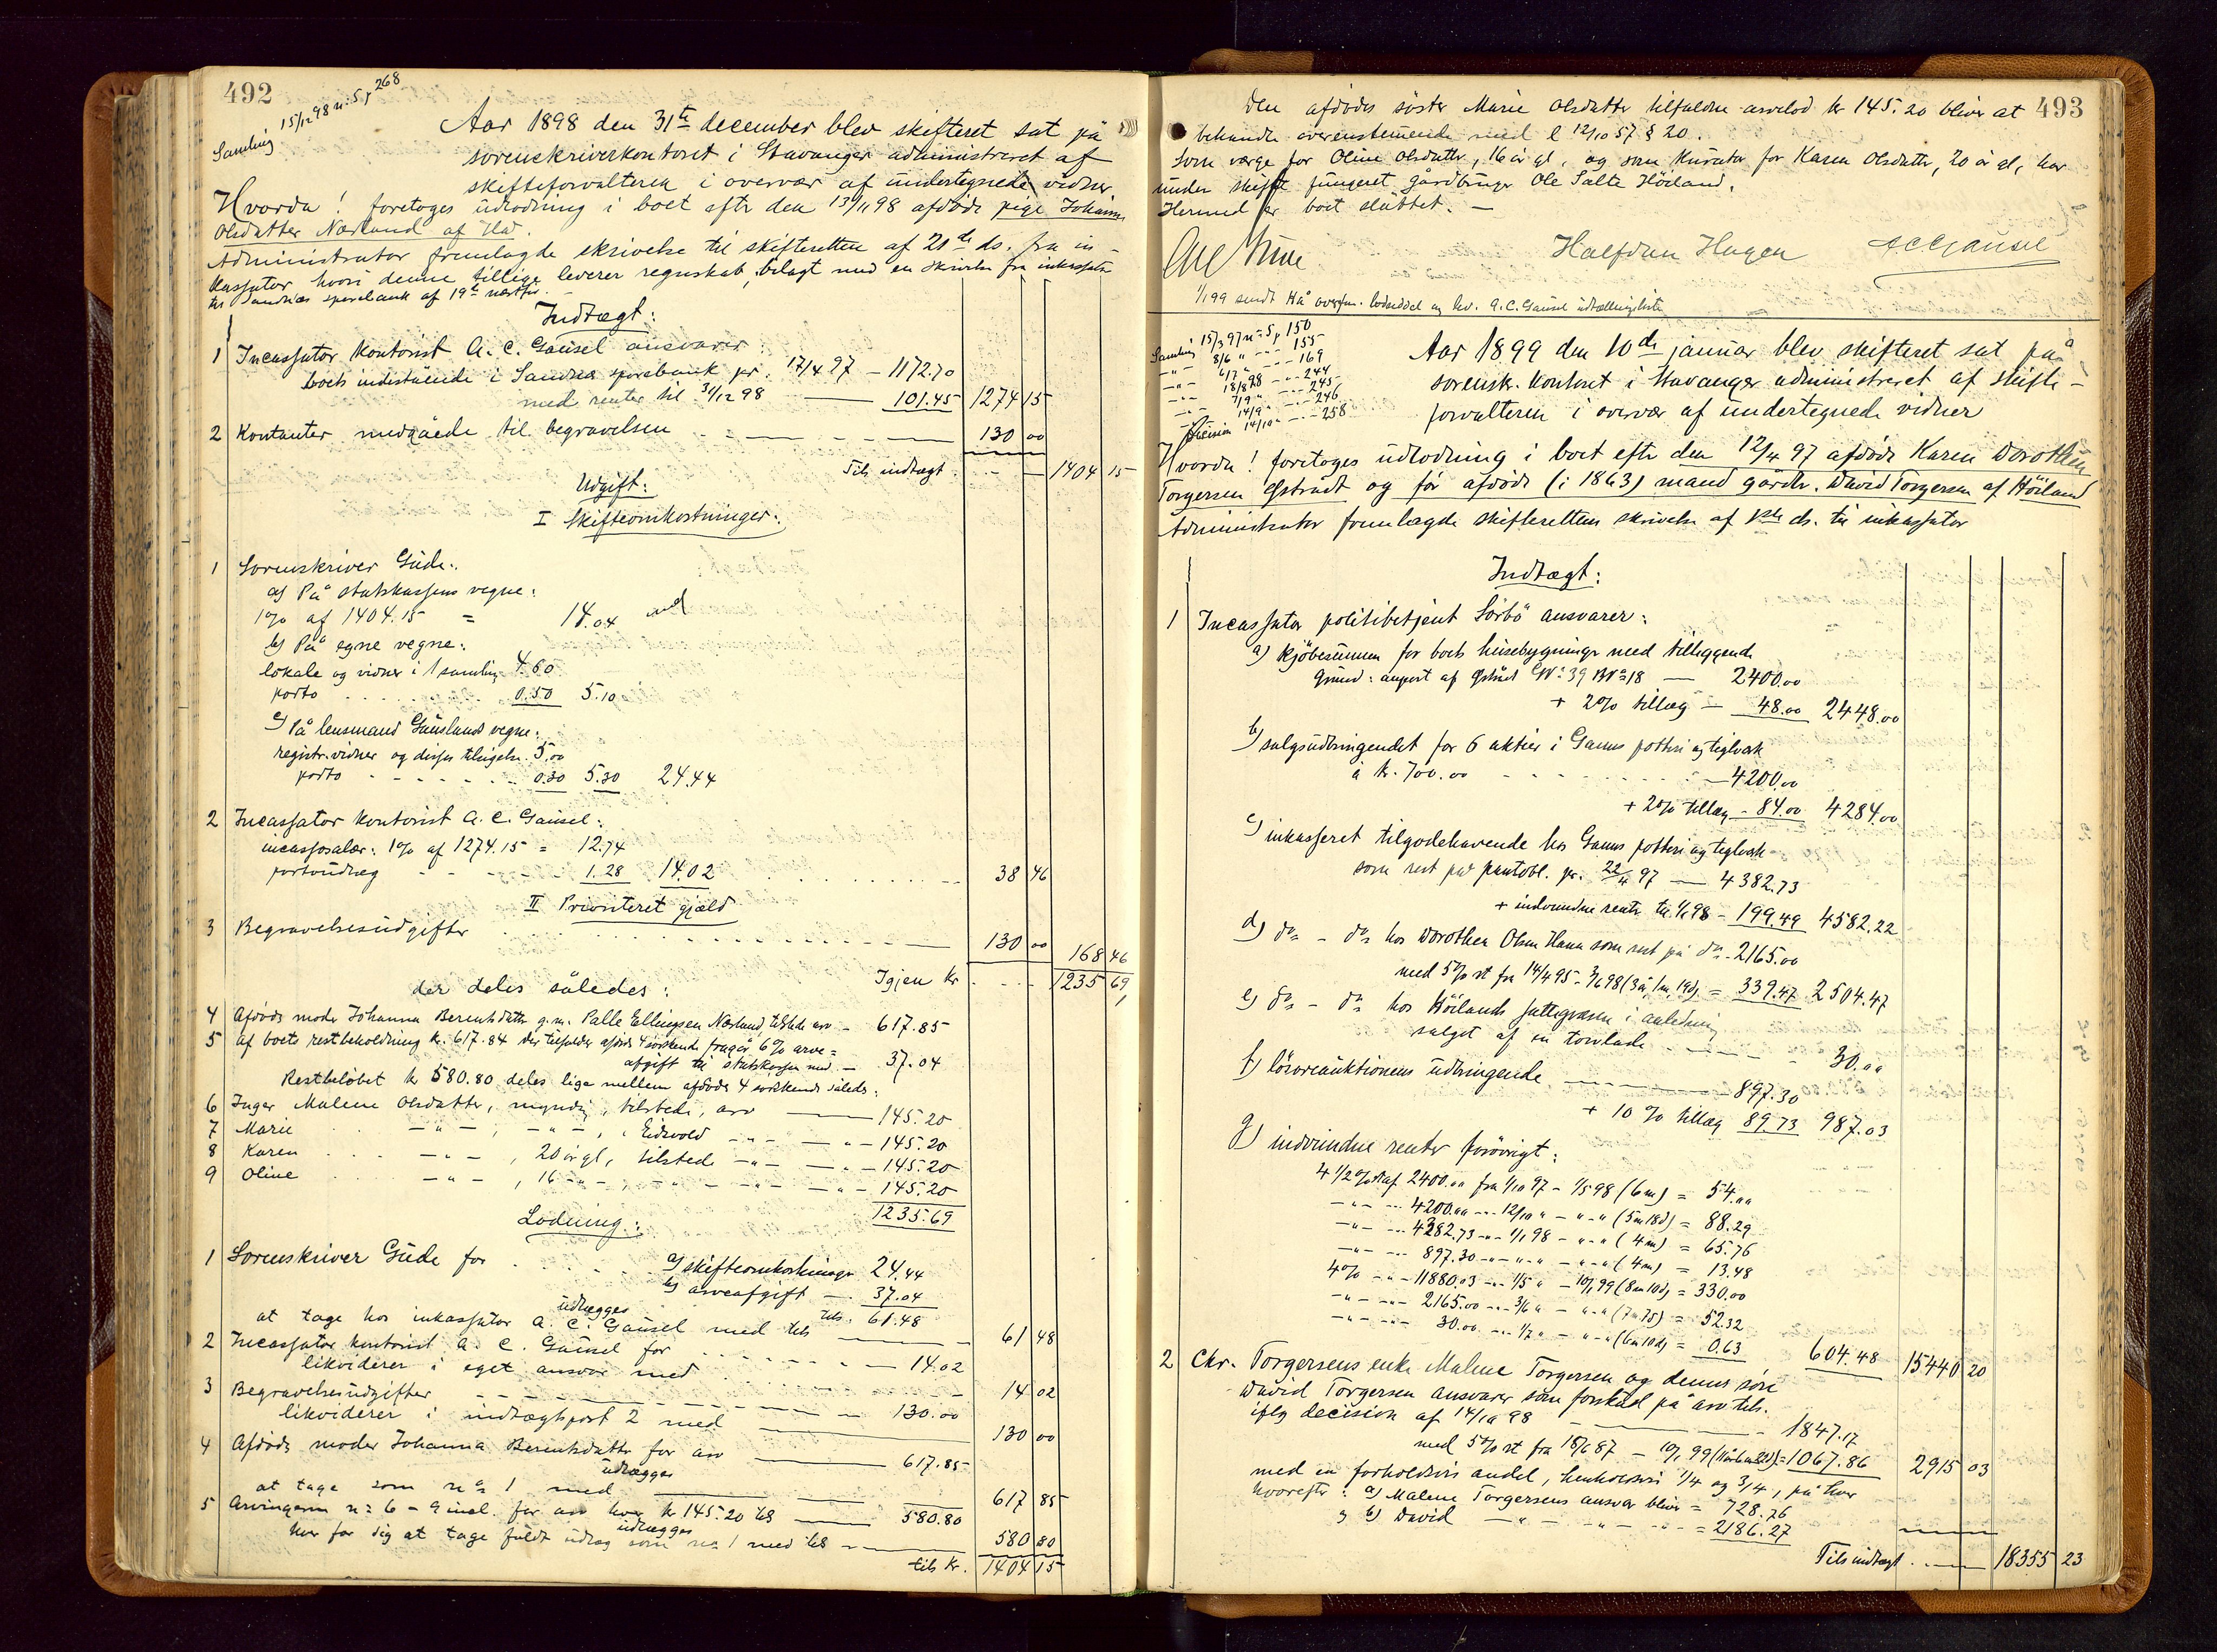 492
Samling 15/12 98 n: 5, p 268
Aar 1898 den 31te december blev skifteret sat på
sorenskriverkontoret i Stavanger administreret af
skifteforvalteren i overvær af undertegnede vidner
Hvorda! foretoges udlodning i boet efter den 13/11 98 afdøde pige Johanne
Olsdatter Nærland af Hå.
Administrator fremlagde skrivelse til skifteretten af 21de ds. fra in-
kassator hvori denne tillige leverer regnskab, bilagt med en skrivelse fra inkassator
til Sandnæs sparebank af 19de næstfør. -
Indtægt:
1 Incassator kontorist A. C. Gausel ansvarer:
boets indestående i Sandnæs sparebank pr. 17/4 97 - 1172.70
med renter til 31/12 98 101.45 1274 15
2 Kontanter medgåede til begravelsen 130 00
Tils indtægt - 1404 15
Udgift:
I Skifteomkostninger:
1 Sorenskriver Gude:
a) På statskassens vegne:
1% af 1404.15 = 14.04
b) På egne vegne:
lokale og vidner i 1 samling 4.60
porto 0.50 5.10
c) På lensmand Gauslands vegne:
registr.vidner og disses tilsigelse 5.00
porto 0.30 5.30 24.44
2 Incassator kontorist A. C. Gausel:
incassosalær: 1% af 1274.15 = 12.74
portoudlæg 1.28 14.02 38 46
II Prioriteret gjæld
3 Begravelsesudgifter 130 00 168 46
Igjen kr 1235 69
der deles således:
4 Afdødes moder Johanna Berentsdatter g. m. Palle Ellingsen Nærland, tilstede arv - 617.85
5 Af boets restbeholdning kr. 617.84 der tilfalder afdødes 4 søskende fragår 6% arve=
afgift til statskassen med - 37.04
Restbeløbet kr 580.80 deles lige mellem afdødes 4 søskende således:
6 Inger Malene Olsdatter, myndig, tilstede, arv 145.20
7 Marie -"-, -"-, i Eidsvold -"- 145.20
8 Karen -"-, 20 år gl, tilstede -"- 145.20
9 Oline -"-, 16 -"-, -"- -"- 145.20
1235.69
Lodning:
1 Sorenskriver Gude for a) skifteomkostninger 24.44
b) arveafgift - 37.04
tils. 61.48
udlægges
at tage hos inkassator A. C. Gausel med tils 61 48
2 Incassator kontorist A. C. Gausel for 14.02
likviderer i eget ansvar med 14 02
3 Begravelsesudgifter 130.00
likviderer i indtægtspost 2 med 130 00
4 Afdødes moder Johanna Berentsdatter for arv 617.85
udlægges
at tage som no 1 med 617 85
5 Arvingerne no 6 - 9 incl. for arv hver kr 145.20 tils 580.80
udlægges
hver for sig at tage fuldt udlæg som no 1 med tils 580 80
tils kr. 1404 15
493
Den afdødes søster Marie Olsdatter tilfaldne arvelod kr 145.20 bliver at
behandle overenstemmende med l 12/10 57 § 20.
Som værge for Oline Olsdatter, 16 år gl. og som kurator for Karen Olsdatter, 20 år gl, har
under skiftet fungeret gårdbruger Ole Salte Höiland.
Hermed er boet sluttet. -
Halfdan Hagen A C Gausel
1/1 99 sendt Hå overfor. lodseddel og kv. A. C. Gausel udtællingsliste
Samling 15/3 97 n: 5, p 150
-"- 8/6 " - - - 155
-"- 6/7 " - - - 169
-"- 18/8 98 - - - 244
-"- 7/9 " - - - 245
-"- 14/9 " - - - 246
Decision 14/10 " - - - 258
Aar 1899 den 10de januar blev skifteret sat på
sorenskr. kontoret i Stavanger administreret af skifte-
forvalteren i overvær af undertegnede vidner
Hvorda! foretoges udlodning i boet efter den 12/4 97 afdøde Karen Dorothea
Torgersen Østrådt og før afdøde (i 1863) mand gårdbr. David Torgersen af Höiland
Administrator fremlagde skifterettens skrivelse af ds. til inkassator
Indtægt:
1 Incassator politibetjent Sörbö ansvarer:
a) kjøbesummen for boets husebygninger med tilliggende
grund: anpart af Østrådt GNo 39 BNo 18 2400.00
+ 2% tillæg - 48.00 2448.00
b) salgsudbringendet for 6 aktier i Ganns potteri og teglverk
à kr. 700.00 4200.00
+ 2% tillæg - 84.00 4284.00
c) inkasseret tilgodehavende hos Ganns potteri og teglverk
som rest på pantobl. pr. 22/11 97 4382.73
+ indvundne renter til 1/1 98 - 199.49 4582.22
d) do - do hos Dorothea Olsen Hana som rest på do 2165.00
med 5% rt fra 14/4 95 - 3/6 98 (3 år, 1 m, 19 d) = 339.47 2504.47
e) do - do hos Höilands fattigvæsen i anledning
salget af en torvlade 30.00
f) lösöreauktionens udbringende 897.30
+ 10% tillæg 89.73 987.03
g) indvundne renter forövrigt:
4 1/2% rt af 2400.00 fra 1/11 97 - 1/5 98 (6 m) = 54.00
-"- - - 4200.00 - - 12/10 " - " - " (5 m 18 d) = 88.29
-"- - - 4382.73 - - 1/1 98 - " - " (4 m) = 65.76
-"- - - 897.30 - " - " - " - " (4 m) = 13.48
4% - - - 11880.03 - - 1/5 " - 10/1 99 (8 m 10 d) = 330.00
-"- - - 2165.00 - - 3/6 " - " - " (7 m 7 d) = 52.32
-"- - - 30.00 - - 1/7 " - " - " (6 m 10 d) = 0.63 604.48 15440 20
2 Chr. Torgersens enke Malene Torgersen og dennes søn
David Torgersen ansvarer som forskud på arv tils.
iflg decision af 14/10 98 1847.17
med 5% rt fra 18/6 87 - 10/1 99 = 1067.86 2915 03
med en forholdsvis andel, henholdsvis 1/4 og 3/4, på hver
hvorefter: a) Malene Torgersens ansvar bliver = 728.76
og b) David -"- -"- -"- = 2186.27
Tils indtægt 18355 23